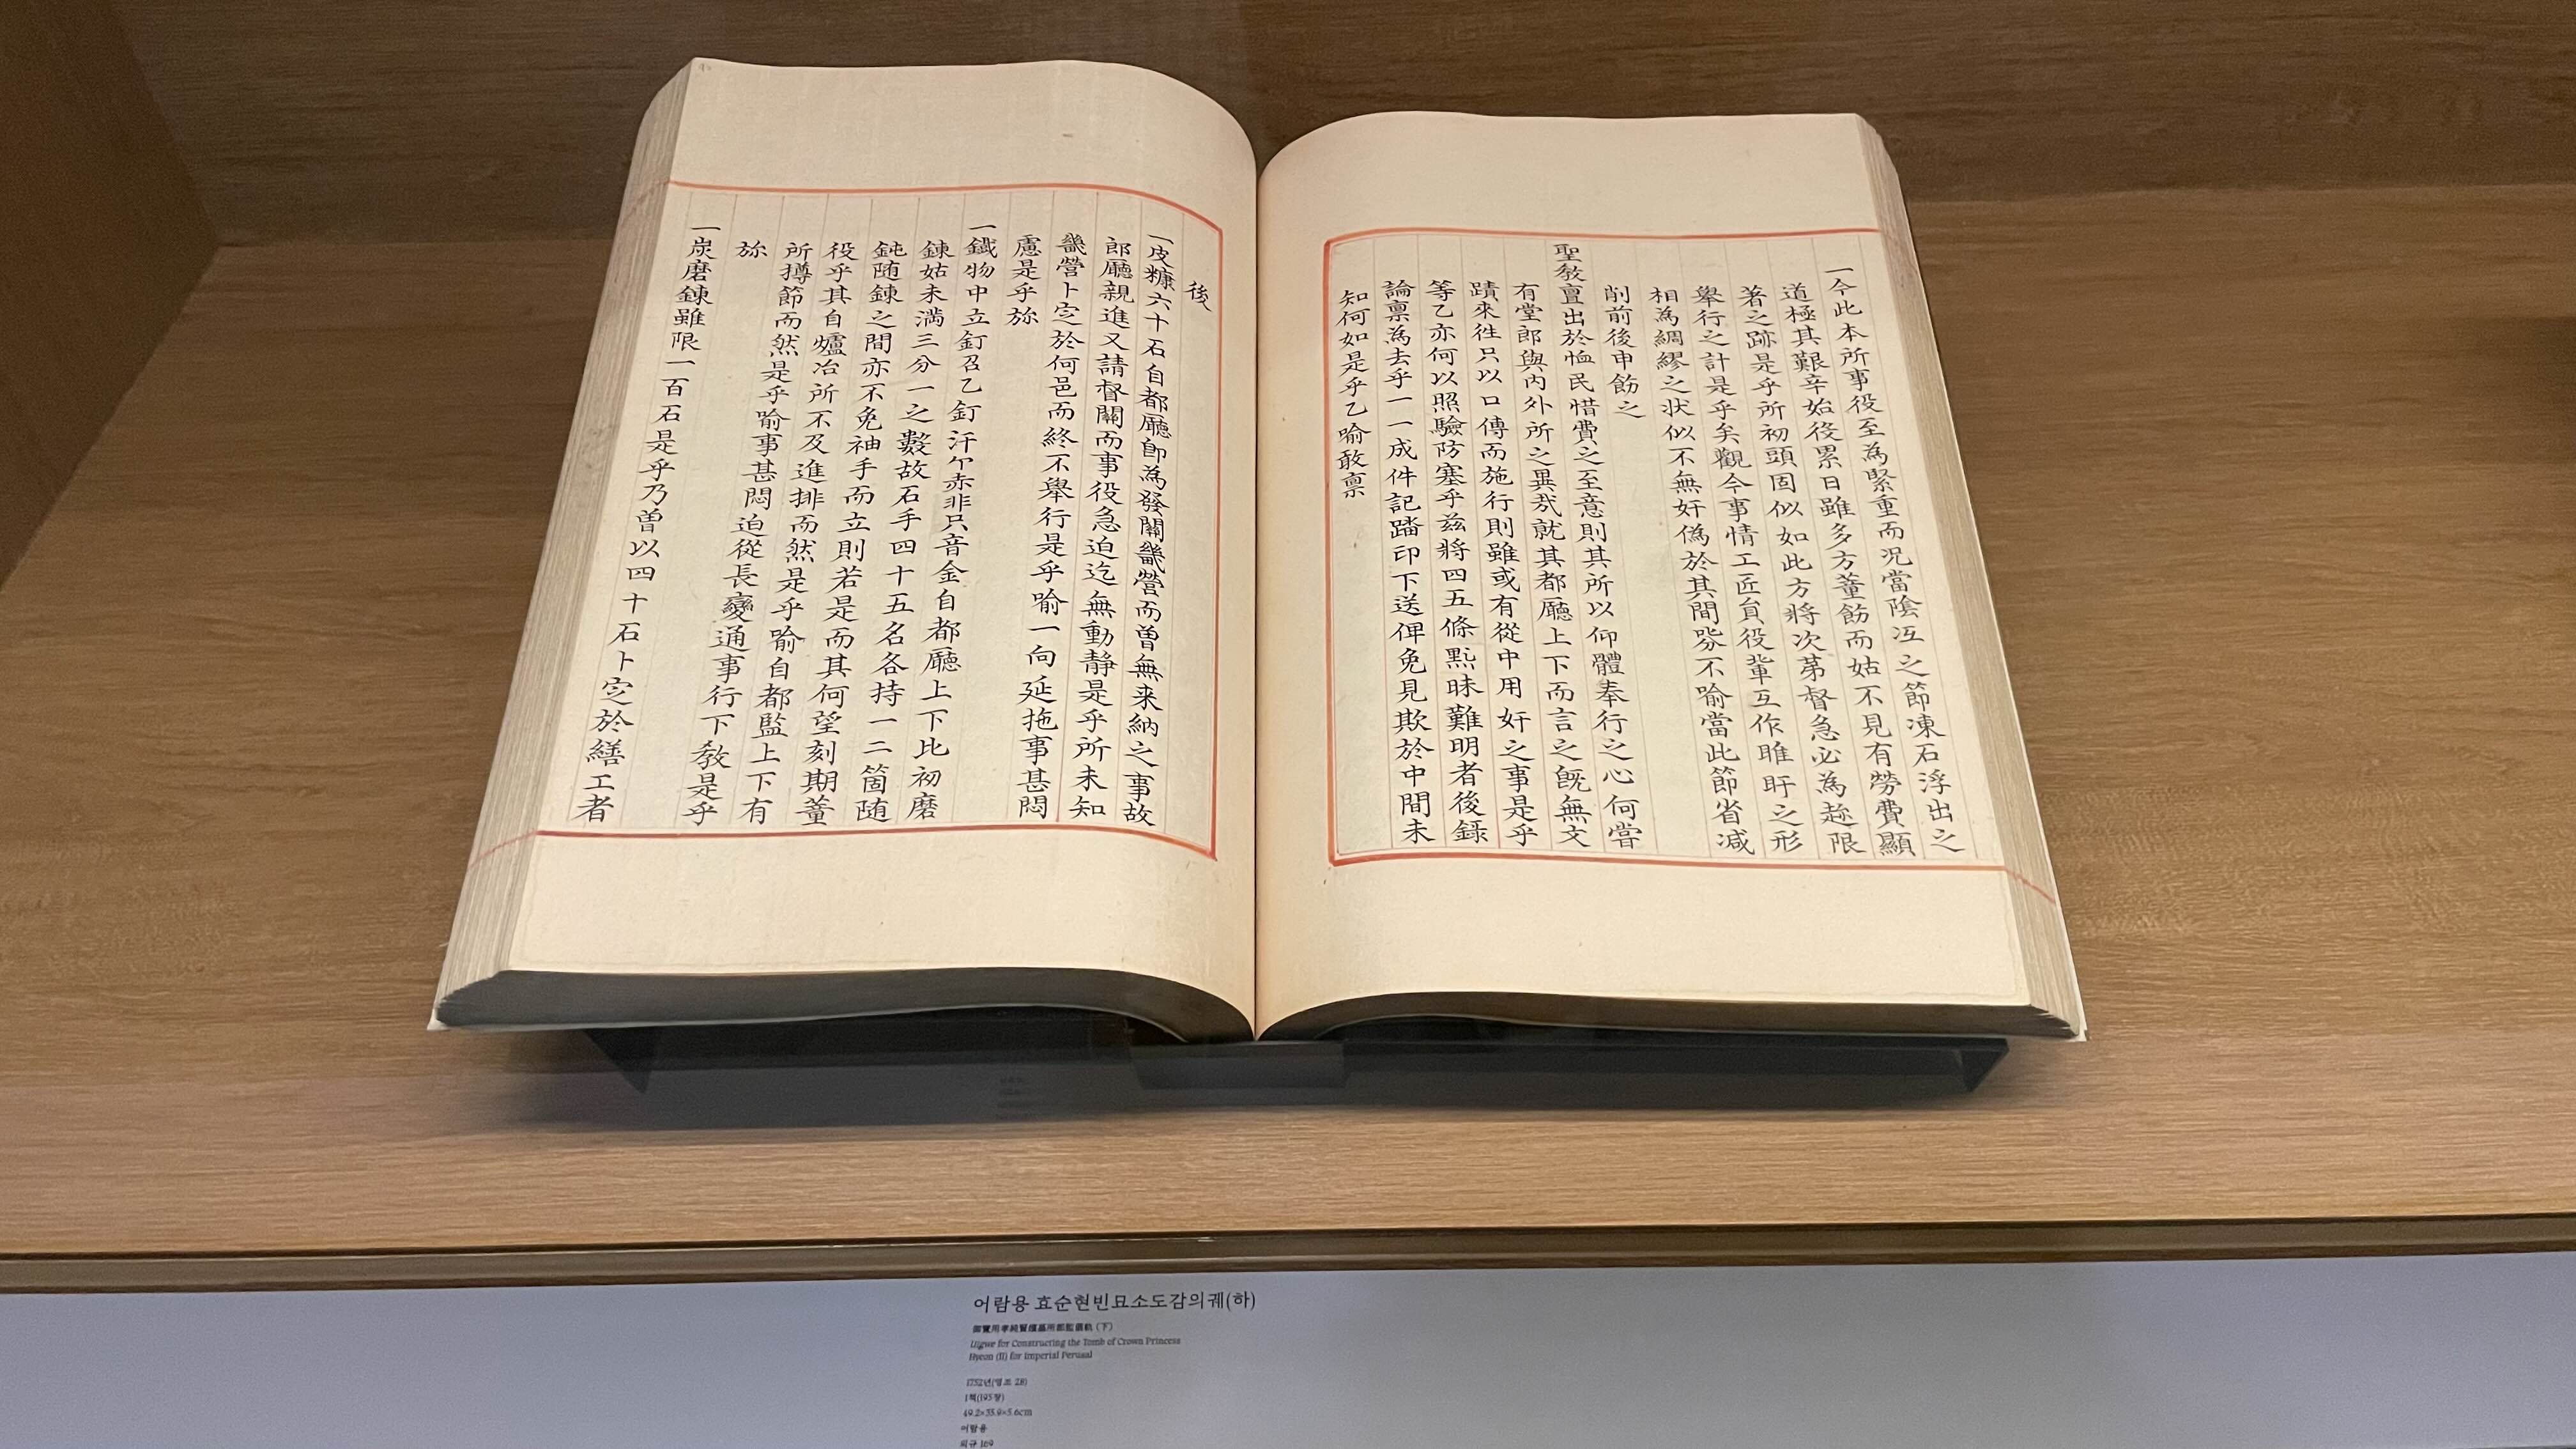 一今此本所事役至為緊重而況當陰冱之節凍石浮出之
道極其艱辛始役累日雖多方董飭而姑不見有勞費顯
著之跡是乎所初頭固似如此方將次苐督急必為趂限
舉行之計是乎矣觀今事情工匠貟役軰互作睢盱之形
相為綢繆之状似不無奸僞於其間哛不喻當此節省减
削前後申飭之
聖敎亶出於恤民惜費之至意則其所以仰體奉行之心何嘗
有堂郎與內外所之異㢤就其都廳上下而言之旣無文
蹟來徃只以口傳而施行則雖或有從中用奸之事是乎
等乙亦何以照驗防塞乎兹將四五條㸃昧難明者後錄
論禀為去乎一一成件記踏印下送俾免見欺於中間未
知何如是乎乙喻敢禀
後
一皮糠六十石自都廳卽為發關畿營而曾無来納之事故
郎廳親進又請督關而事役急迫迄無動靜是乎所未知
畿營卜㝎於何邑而終不舉行是乎喻一向延拖事甚悶
慮是乎旀
一鐵物中立釘召乙釘汗尒赤非只音金自都廳上下比初磨
鍊姑未満三分一之數故石手四十五名各持一二箇随
鈍随鍊之間亦不免袖手而立則若是而其何望刻期董
役乎其自爐冶所不及進排而然是乎喻自都監上下有
所撙節而然是乎喻事甚悶迫從長變通事行下敎是乎
旀
一炭磨鍊雖限一百石是乎乃曽以四十石卜㝎於繕工者
어람용 효순현빈묘소도감의궤(하)
御覽用孝純賢嬪墓所都監儀軌（下）
Uigwe for Constructing the Tomb of Crown Princess
Hyeon (II) for Imperial Perusal
1752년(영조 28)
1책(195장)
49.2×33.9×5.6cm
어람용
외규 169